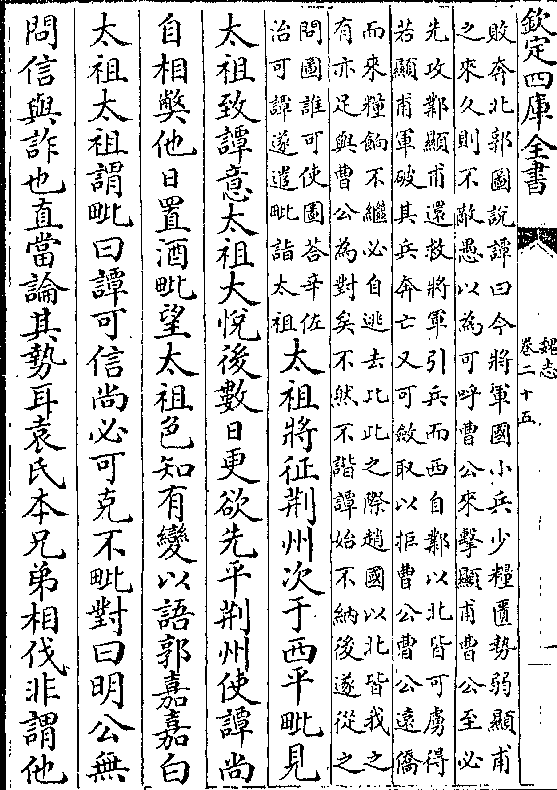 欽定四庫全書
魏志
卷二十五
敗奔北郭圖說譚曰今將軍國小兵少糧匱勢弱顯甫
之來久則不敵愚以為可呼曹公來擊顯甫曹公至必
先攻鄴顯甫還救將軍引兵而西自鄴以北皆可虜得
若顯甫軍破其兵奔亡又可斂取以拒曹公曹公遠僑
而來糧餉不繼必自逃去比此之際趙國以北皆我之
有亦足與曹公為對矣不然不諧譚始不納後遂從之
問圖誰可使圖答辛佐
治可譚遂遣毗詣太祖
太祖將征荆州次于西平毗見
太祖致譚意太祖大恱後數日更欲先平荆州使譚尚
自相獘他日置酒毗望太祖色知有變以語郭嘉嘉白
太祖太祖謂毗曰譚可信尚必可克不毗對曰明公無
問信與詐也直當論其勢耳袁氏本兄弟相伐非謂他